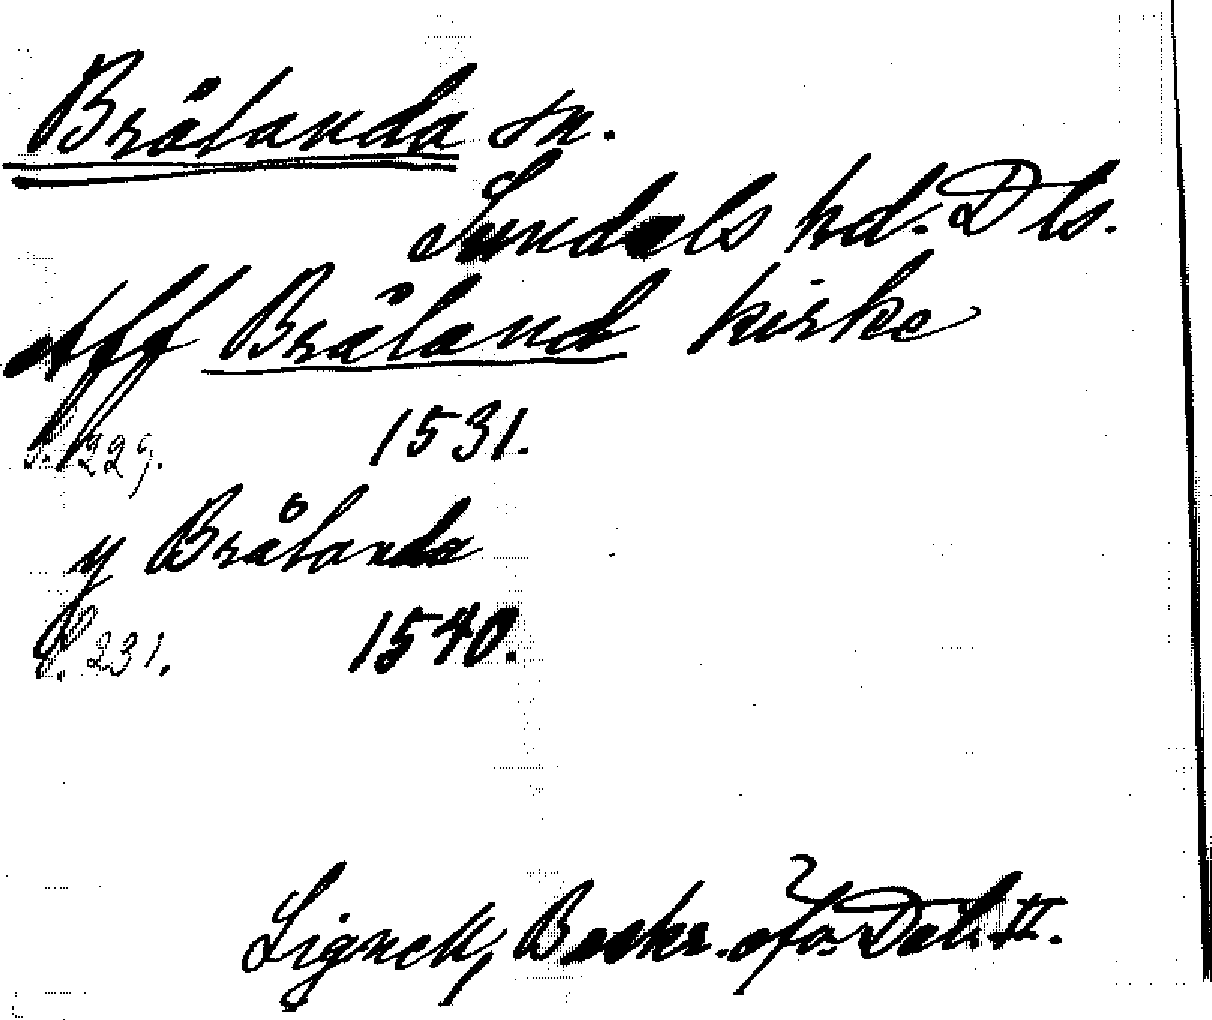 Brålanda sn.
Sundals hd. Dls.
Aff Bråland kirke
S. 229. 1531.
y Brålanda
S. 231. 1540.
Lignell, Beskr. öfv. Dal. II.